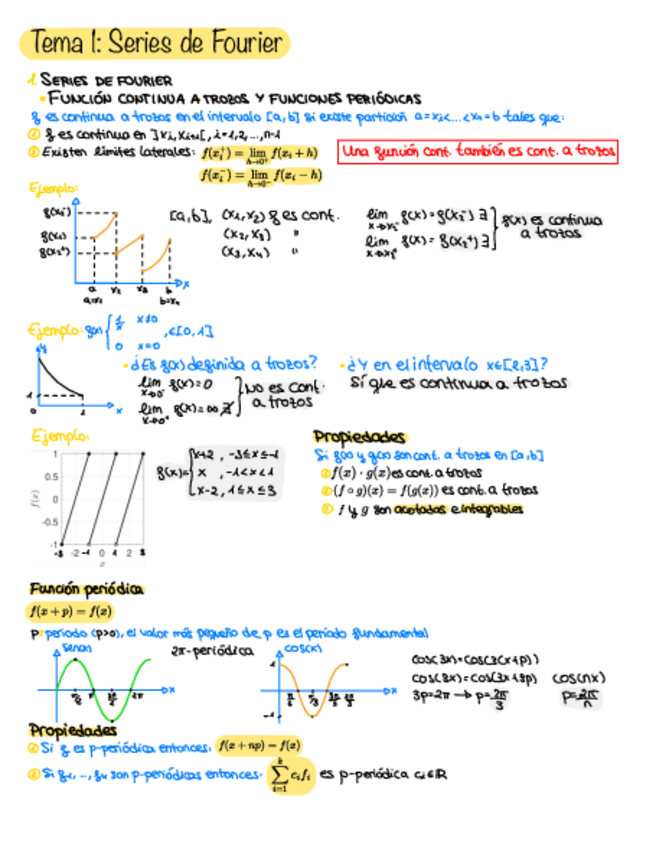 Tema 1: Series de Fourier
1. SERIES DE FOURIER
• FUNCIÓN CONTINUA A TROZOS Y FUNCIONES PERIÓDICAS
f es continua a trozos en el intervalo [a,b] si existe partición a=x₁<...<xₙ=b tales que:
① f es continua en ]xᵢ, xᵢ₊₁[, i=1,2,...,n-1
② Existen límites laterales: f(xᵢ⁺) = lim h→0⁺ f(xᵢ + h)
f(xᵢ⁻) = lim h→0⁻ f(xᵢ − h)
Una función cont. también es cont. a trozos
Ejemplo:
[a,b], (x₁,x₂) f es cont.
(x₂,x₃) "
(x₃,x₄) "
f(x) es continua a trozos
a b
a=x₁ x₂ x₃ b=x₄
x
Ejemplo: f(x) { 1/x x≠0
0 x=0 , ∈[0,1]
• ¿Es f(x) definida a trozos?
lim x→0⁻ f(x)=0
lim x→0⁺ f(x)=∞ ∄
No es cont. a trozos
• ¿Y en el intervalo x∈[2,3]?
Sí que es continua a trozos
Ejemplo:
f(x)= { x+2, -3≤x≤-1
x, -1<x<1
x-2, 1≤x≤3
1
0.5
0
-0.5
-1
f(x)
-3 -2 -1 0 1 2 3
x
Propiedades
Si f(x) y g(x) son cont. a trozos en [a,b]
① f(x) · g(x) es cont. a trozos
② (f ∘ g)(x) = f(g(x)) es cont. a trozos
③ f y g son acotadas e integrables
Función periódica
f(x + p) = f(x)
p: periodo (p>0), el valor más pequeño de p es el periodo fundamental
sen(x)
2π-periódica
cos(x)
cos(3x)=cos(3(x+p))
cos(3x)=cos(3x+3p)
3p=2π → p=2π/3
cos(nx)
p=2π/n
Propiedades
① Si f es p-periódica entonces: f(x + np) = f(x)
② Si f₁,...,fₖ son p-periódicas entonces: ∑ᵢ₌₁ᵏ cᵢfᵢ es p-periódica cᵢ∈ℝ